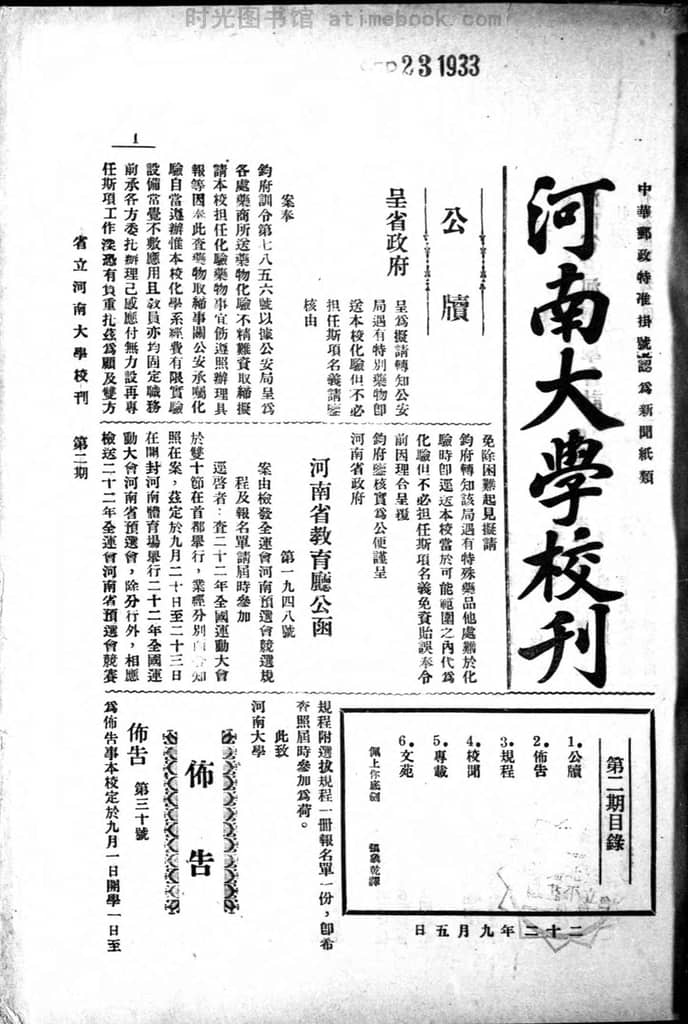 时光图书馆 atimebook.com
23 1933
中華郵政特准掛號認為新聞紙類
河南大學校刊
第二期目錄
1.公牘
2.佈告
3.規程
4.校聞
5.專載
6.文苑
佩上你底劍
張義乾譯
二十二年九月五日
公牘
呈省政府
呈為擬請轉知公安
局遇有特別藥物卽
送本校化驗但不必
担任斯項名義請鑒
核由
案奉
鈞府訓令第七八五六號以據公安局呈為
各處藥商所送藥物化驗不精難資取締擬
請本校担任化驗藥物事宜仿遵照辦理具
報等因奉此查藥物取締事關公安承囑化
驗自當遵辦惟本校化學系經費有限實驗
設備常覺不敷應用且敎員亦均固定職務
前承各方委托辦理已感應付無力設再專
任斯項工作深恐有負重托茲為顧及雙方
免除困難起見擬請
鈞府轉知該局遇有特殊藥品他處難於化
驗時卽逕送本校當於可能範圍之內代為
化驗但不必担任斯項名義免資貽誤奉令
前因理合呈覆
鈞府鑒核實為公便謹呈
河南省政府
河南省教育廳公函
第一九四八號
案由檢發全運會河南預選會競選規
程及報名單請屆時參加
逕啓者：查二十二年全國運動大會
於雙十節在首都舉行，業經分別函令知
照在案，茲定於九月二十日至二十三日
在開封河南體育場舉行二十二年全國運
動大會河南省預選會，除分行外，相應
檢送二十二年全運會河南省預選會競賽
規程附選拔規程一冊報名單一份，卽希
查照屆時參加為荷。
此致
河南大學
佈告
佈告 第三十號
為佈告事本校定於九月一日開學一日至
省立河南大學校刊 第二期
1